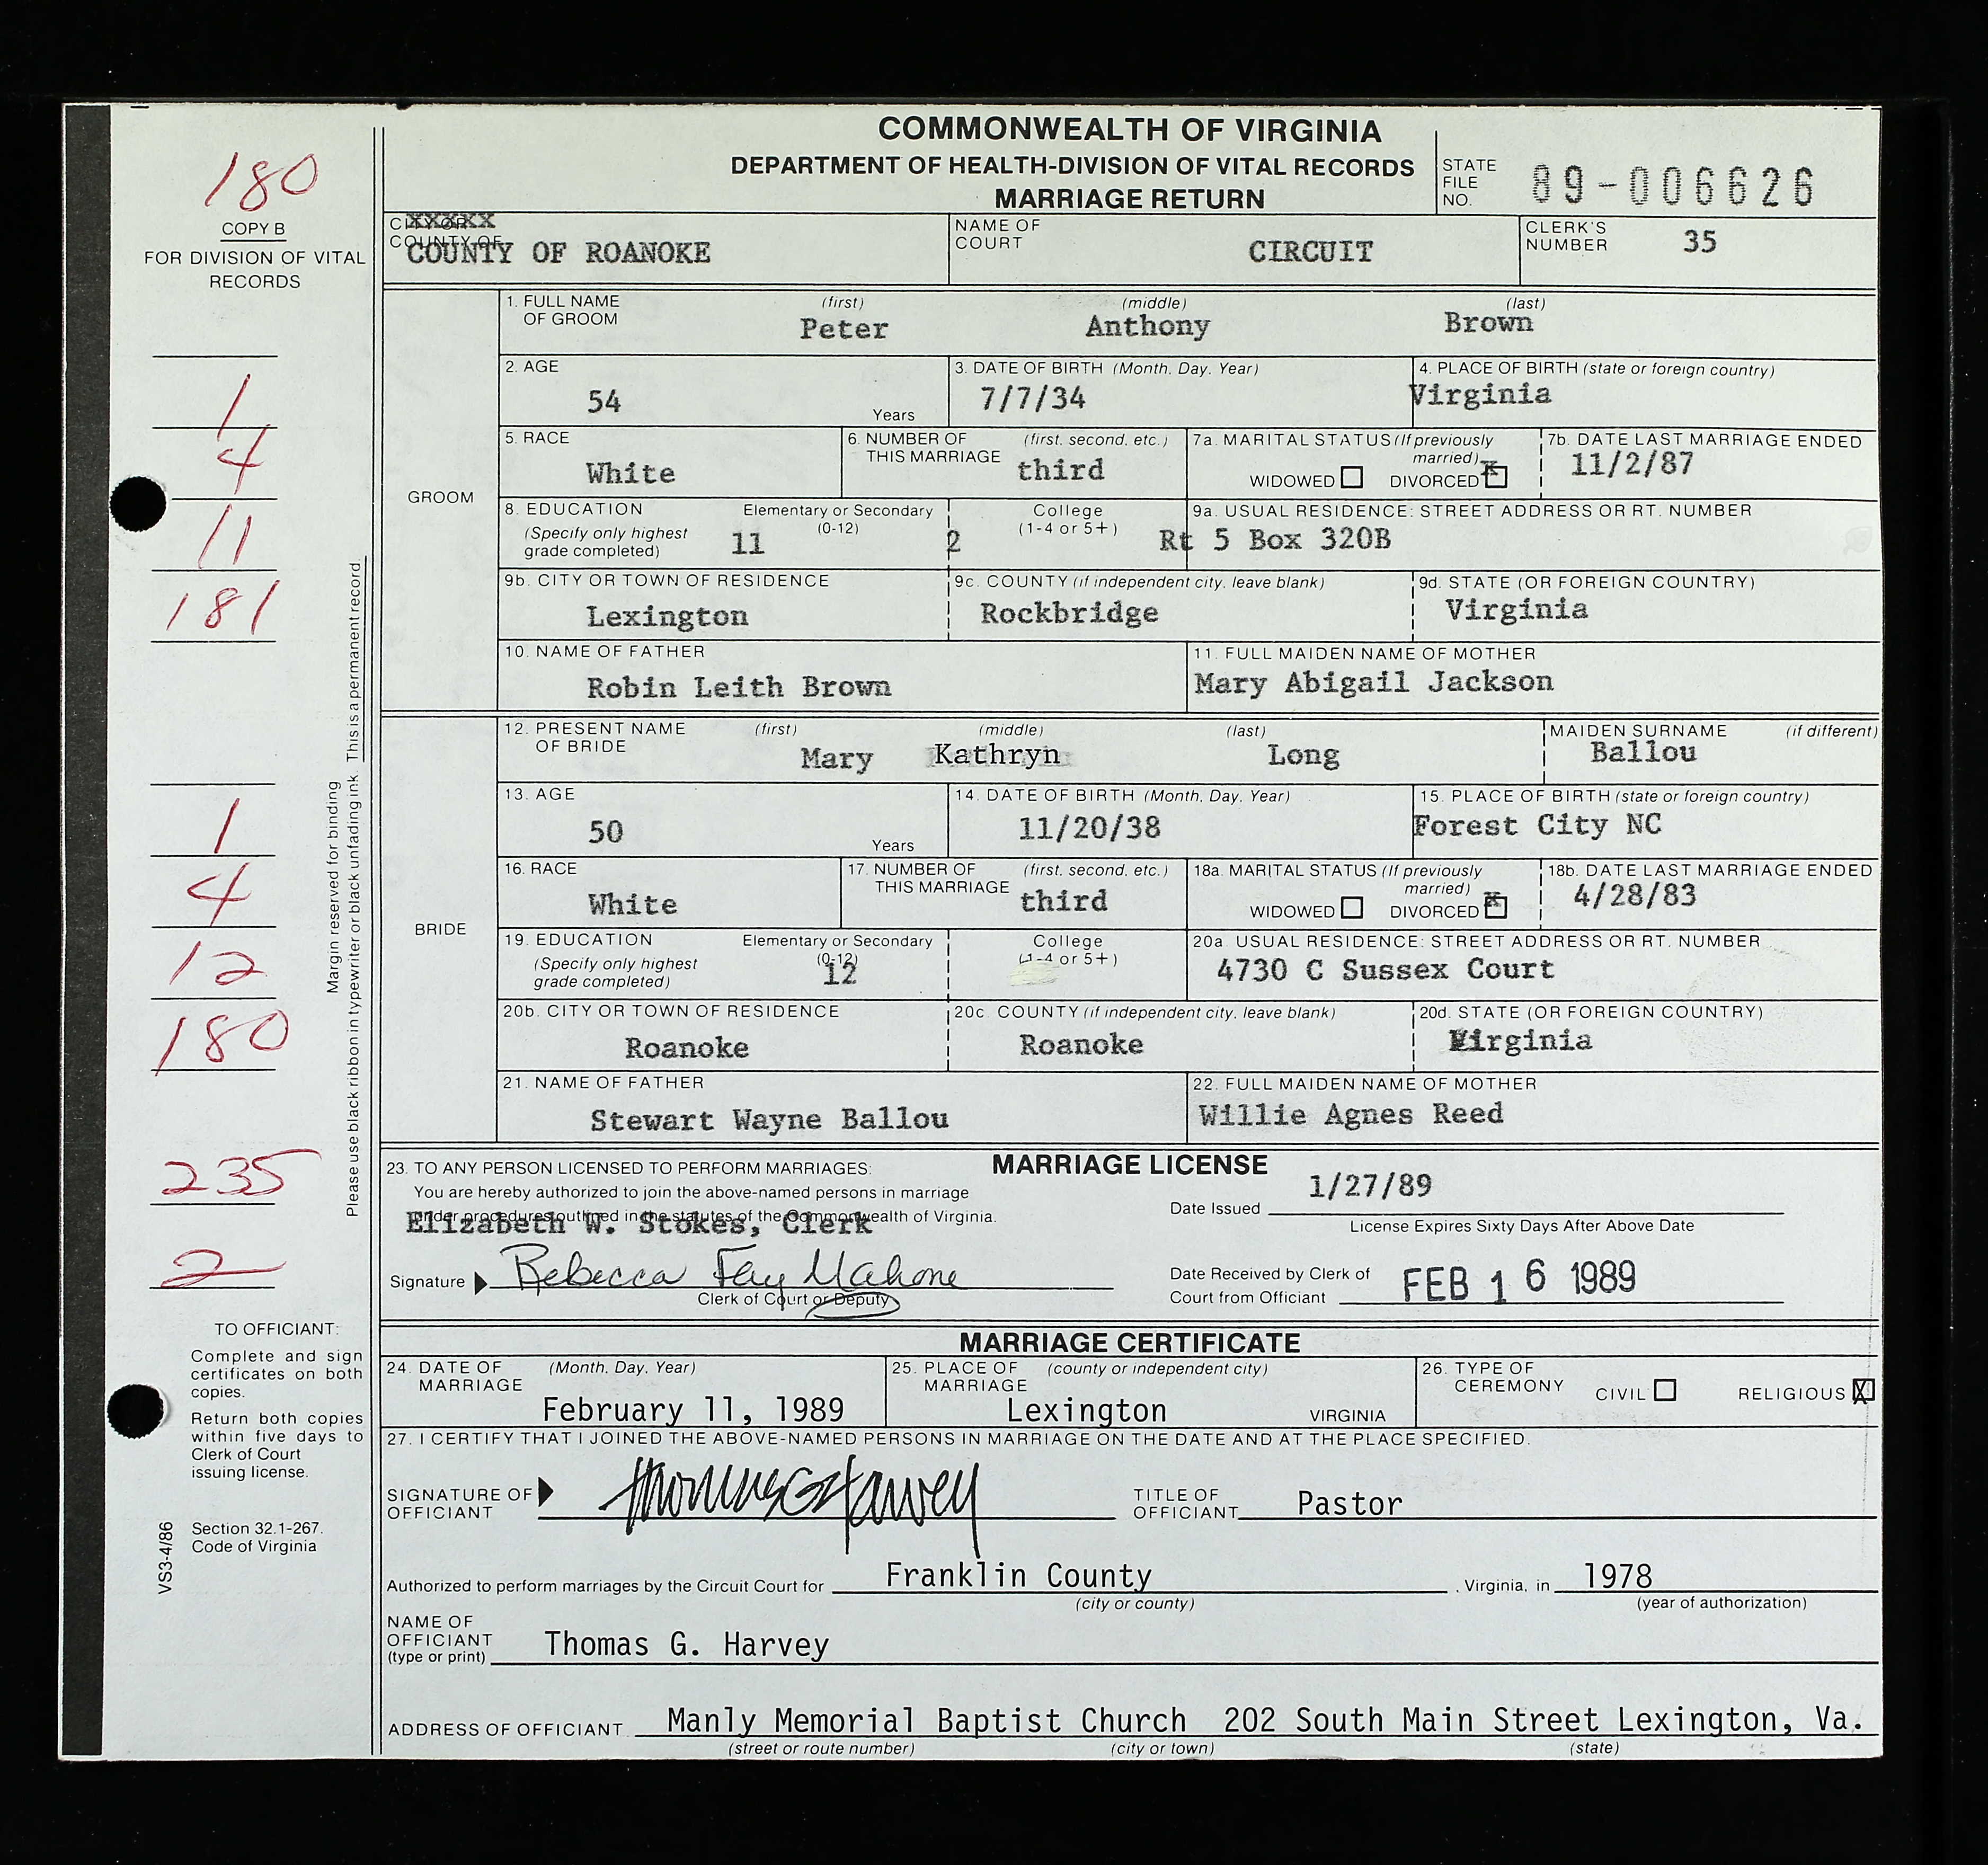 COMMONWEALTH OF VIRGINIA
DEPARTMENT OF HEALTH-DIVISION OF VITAL RECORDS
MARRIAGE RETURN
STATE FILE NO. 89-006626
180
COPY B
FOR DIVISION OF VITAL RECORDS
CITY OR XXXXX
COUNTY OF
COUNTY OF ROANOKE
NAME OF COURT CIRCUIT
CLERK'S NUMBER 35
GROOM
1. FULL NAME OF GROOM (first) Peter (middle) Anthony (last) Brown
2. AGE 54 Years
3. DATE OF BIRTH (Month, Day, Year) 7/7/34
4. PLACE OF BIRTH (state or foreign country) Virginia
5. RACE White
6. NUMBER OF THIS MARRIAGE (first, second, etc.) third
7a. MARITAL STATUS (If previously married) WIDOWED DIVORCED X
7b. DATE LAST MARRIAGE ENDED 11/2/87
8. EDUCATION (Specify only highest grade completed) Elementary or Secondary (0-12) 11 College (1-4 or 5+) 2
9a. USUAL RESIDENCE: STREET ADDRESS OR RT. NUMBER Rt 5 Box 320B
9b. CITY OR TOWN OF RESIDENCE Lexington
9c. COUNTY (if independent city, leave blank) Rockbridge
9d. STATE (OR FOREIGN COUNTRY) Virginia
10. NAME OF FATHER Robin Leith Brown
11. FULL MAIDEN NAME OF MOTHER Mary Abigail Jackson
BRIDE
12. PRESENT NAME OF BRIDE (first) Mary (middle) Kathryn (last) Long
MAIDEN SURNAME (if different) Ballou
13. AGE 50 Years
14. DATE OF BIRTH (Month, Day, Year) 11/20/38
15. PLACE OF BIRTH (state or foreign country) Forest City NC
16. RACE White
17. NUMBER OF THIS MARRIAGE (first, second, etc.) third
18a. MARITAL STATUS (If previously married) WIDOWED DIVORCED X
18b. DATE LAST MARRIAGE ENDED 4/28/83
19. EDUCATION (Specify only highest grade completed) Elementary or Secondary (0-12) 12 College (1-4 or 5+)
20a. USUAL RESIDENCE: STREET ADDRESS OR RT. NUMBER 4730 C Sussex Court
20b. CITY OR TOWN OF RESIDENCE Roanoke
20c. COUNTY (if independent city, leave blank) Roanoke
20d. STATE (OR FOREIGN COUNTRY) Virginia
21. NAME OF FATHER Stewart Wayne Ballou
22. FULL MAIDEN NAME OF MOTHER Willie Agnes Reed
MARRIAGE LICENSE
23. TO ANY PERSON LICENSED TO PERFORM MARRIAGES:
You are hereby authorized to join the above-named persons in marriage
under procedures outlined in the statutes of the Commonwealth of Virginia.
Elizabeth W. Stokes, Clerk
Signature Rebecca Fay Mahone
Clerk of Court or Deputy
Date Issued 1/27/89
License Expires Sixty Days After Above Date
Date Received by Clerk of Court from Officiant FEB 16 1989
MARRIAGE CERTIFICATE
24. DATE OF MARRIAGE (Month, Day, Year) February 11, 1989
25. PLACE OF MARRIAGE (county or independent city) Lexington VIRGINIA
26. TYPE OF CEREMONY CIVIL RELIGIOUS X
27. I CERTIFY THAT I JOINED THE ABOVE-NAMED PERSONS IN MARRIAGE ON THE DATE AND AT THE PLACE SPECIFIED.
SIGNATURE OF OFFICIANT Thomas G Harvey
TITLE OF OFFICIANT Pastor
Authorized to perform marriages by the Circuit Court for Franklin County, Virginia, in 1978
(city or county) (year of authorization)
NAME OF OFFICIANT (type or print) Thomas G. Harvey
ADDRESS OF OFFICIANT Manly Memorial Baptist Church 202 South Main Street Lexington, Va.
(street or route number) (city or town) (state)
1
4
11
181
1
4
12
180
235
2
Margin reserved for binding
Please use black ribbon in typewriter or black unfading ink This is a permanent record.
TO OFFICIANT:
Complete and sign
certificates on both
copies.
Return both copies
within five days to
Clerk of Court
issuing license.
Section 32.1-267.
Code of Virginia
VS3-4/86